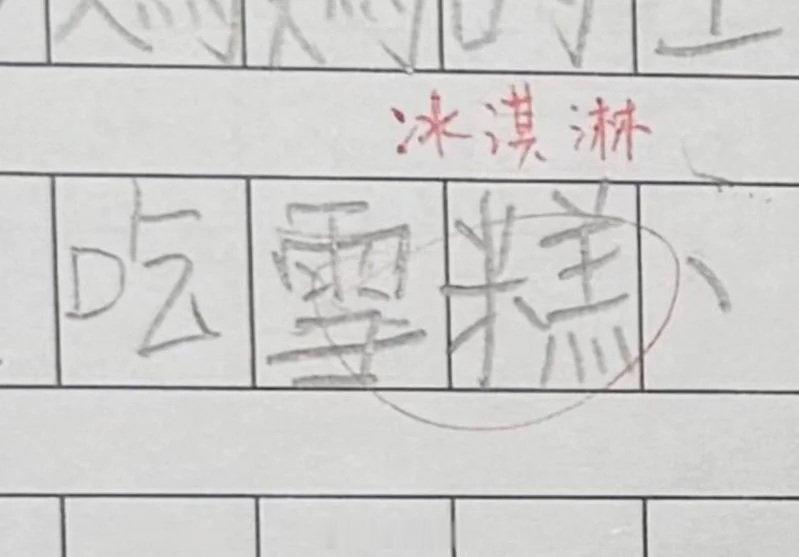 冰淇淋
吃雪糕、